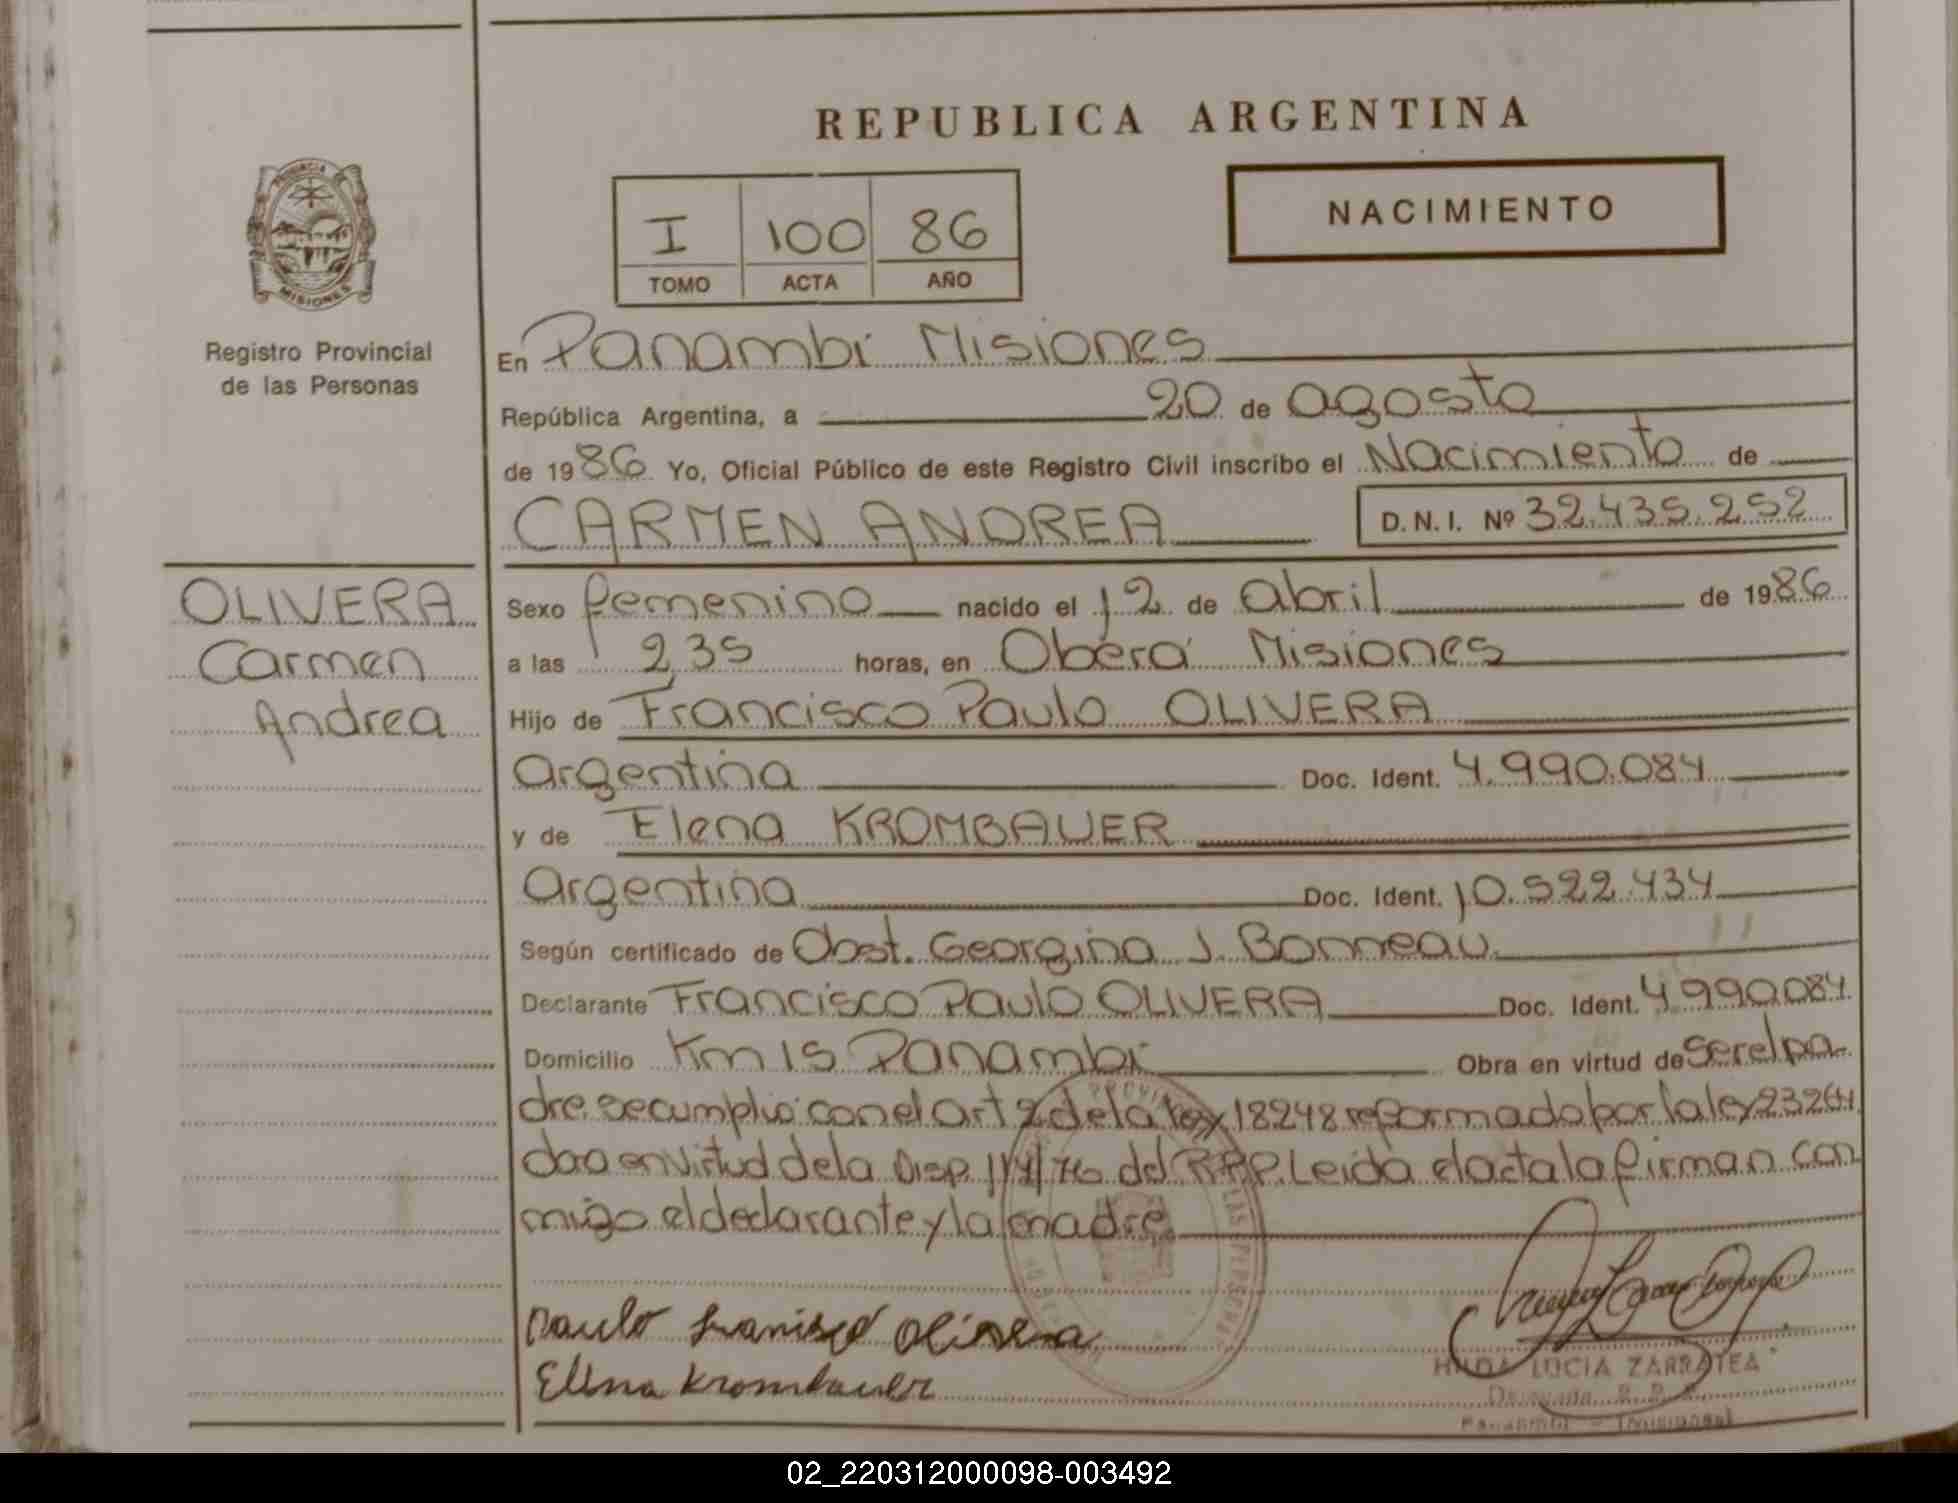 REPUBLICA ARGENTINA
NACIMIENTO
I 100 86
TOMO ACTA AÑO
PROVINCIA
MISIONES
Registro Provincial
de las Personas
En Panambí Misiones
República Argentina, a 20 de agosto
de 1986 Yo, Oficial Público de este Registro Civil inscribo el Nacimiento de
CARMEN ANDREA D.N.I. Nº 32.435.252
OLIVERA
Carmen
Andrea
Sexo femenino nacido el 12 de abril de 1986
a las 2,35 horas, en Oberá Misiones
Hijo de Francisco Paulo OLIVERA
Argentina Doc. Ident. 4.990.084
y de Elena KROMBAUER
Argentina Doc. Ident. 10.522.434
Según certificado de Obst. Georgina J. Bonneau
Declarante Francisco Paulo OLIVERA Doc. Ident. 4.990.084
Domicilio Km 15 Panambí Obra en virtud de ser el pa
dre. se cumplió con el art 2 de la ley 18248 reformado por la ley 23264
dao en virtud de la Disp. 114/76 del R.P.P. Leída el acta la firman con
migo el declarante y la madre
LAS PERSONAS
Paulo Francisco Olivera
Elena Krombauer
HILDA LUCIA ZARRATEA
Delegada R. P. P.
Panambí - (Misiones)
02_220312000098-003492